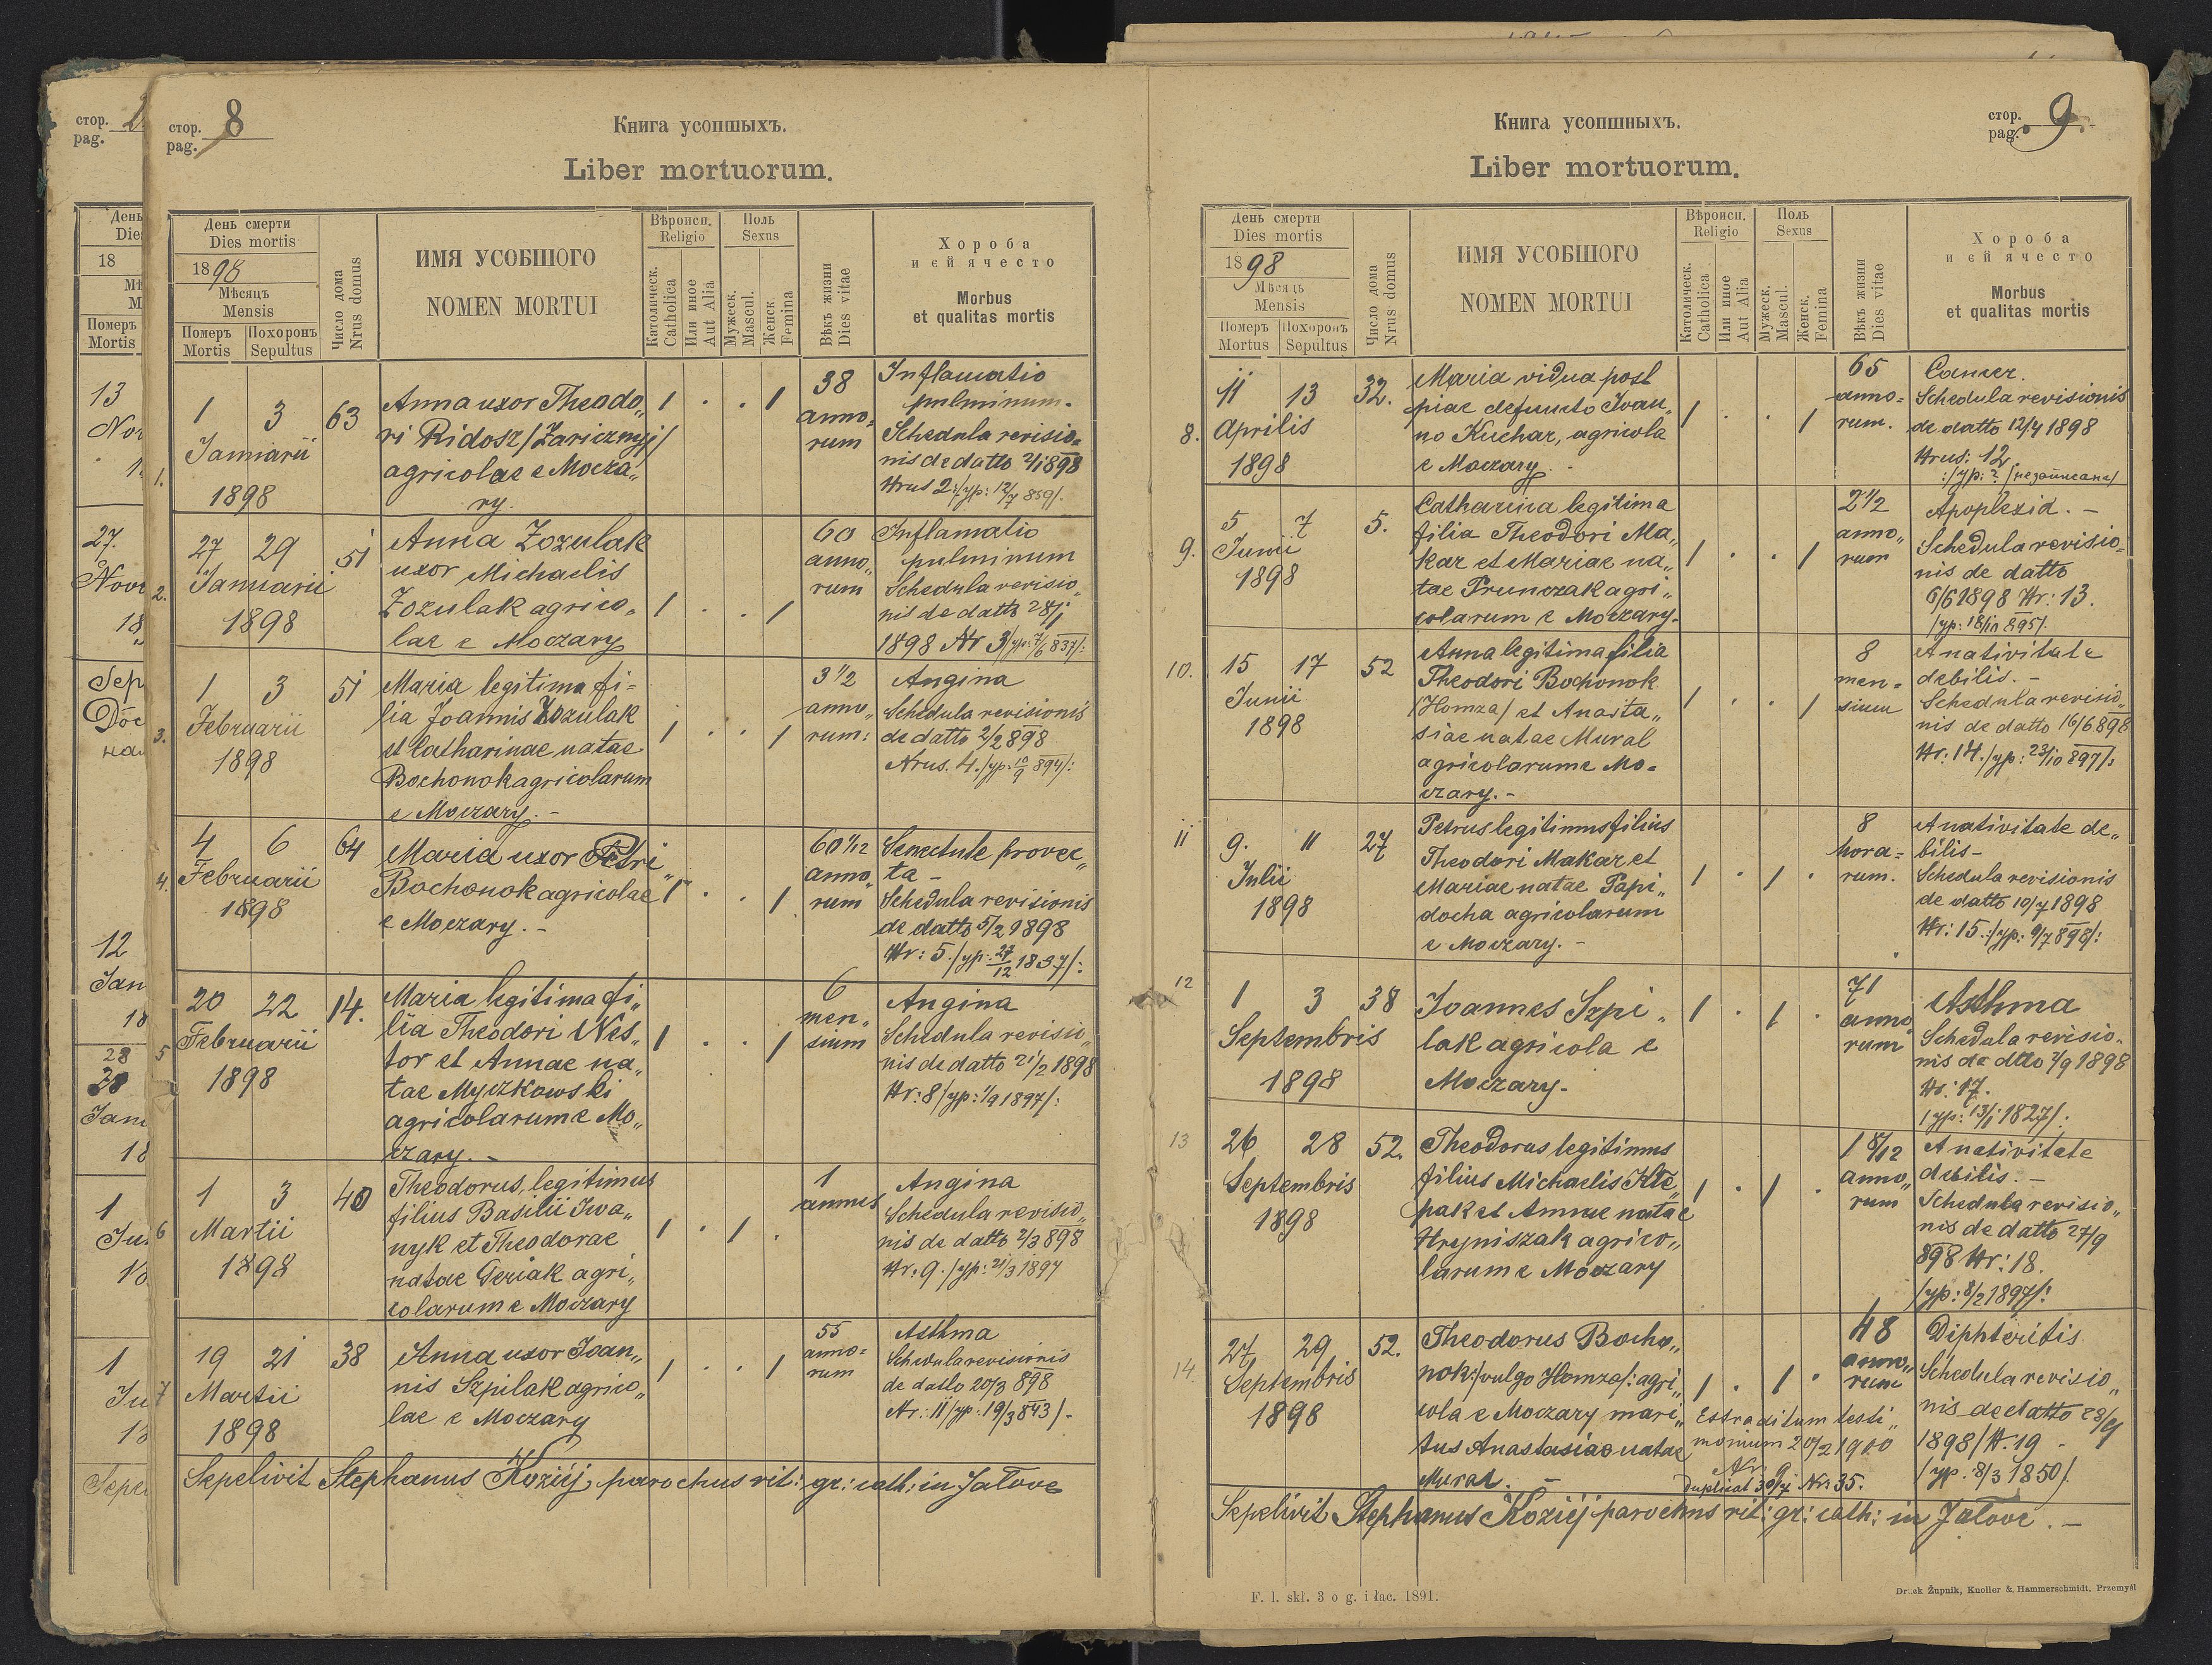 стор. 8
pag.
Книга усопшыхъ.
Liber mortuorum.
День смерти
Dies mortis
1898
Мѣсяцъ
Mensis
Померъ Похоронъ
Mortis Sepultus
Число дома
Nrus domus
ИМЯ УСОБШОГО
NOMEN MORTUI
Вѣроисп.
Religio
Католическ.
Catholica
Или иное
Aut Alia
Поль
Sexus
Мужеск.
Mascul.
Женск
Femina
Вѣкъ жизни
Dies vitae
Хороба
и єй ячесто
Morbus
et qualitas mortis
1.
1 3
Januarii
1898
63
Anna uxor Theodo„
ri Ridosz /Zaricznyj/
agricolae e Mocza„
ry.
1 . . 1
38
anno=
rum
Inflamatio
pulminum.
Schedula revisio=
nis de datto 2/1 898
Nrus 2 :/ур: 12/7 859/.
2.
27 29
Januarii
1898
51
Anna Zozulak
uxor Michaelis
Zozulak agrico„
lae e Moczary
1 . . 1
60
anno„
rum
Inflamatio
pulminum
Schedula revisio„
nis de datto 28/1
1898 Nr 3 /ур: 7/6 837/:
3.
1 3
Februarii
1898
51
Maria legitima fi=
lia Joannis Zozulak
et Catharinae natae
Bochonok agricolarum
e Moczary. -
1 . . 1
3 1/2
anno„
rum:
Angina
Schedula revisionis
de datto 2/2 898
Nrus. 4. /ур: 10/9 894/:
4.
4 6
Februarii
1898
64
Maria uxor Petri
Bochonok agricolae
e Moczary. -
1 . . 1
60 1/12
anno„
rum
Senectute provec„
ta -
Schedula revisionis
de datto 5/2 1898
Nr: 5. /ур: 27/12 1837/:
5
20 22
Februarii
1898
14.
Maria legitima fi„
lia Theodori Nes„
tor et Annae na„
tae Myczkowski
agricolarum e Mo„
czary. -
1 . . 1
6
men„
sium
Angina
Schedula revisio„
nis de datto 21/2 1898
Nr: 8 /ур: 1/9 1897/:
6
1 3
Martii
1898
40
Theodorus, legitimus
filius Basilii Iwa„
nyk et Theodorae
natae Geriak agri„
colarum e Moczary
1 . 1 .
1
annus
Angina
Schedula revisio„
nis de datto 2/3 898
Nr: 9. /ур: 21/3 1897
7
19 21
Martii
1898
38
Anna uxor Joan„
nis Szpilak agrico„
lae e Moczary
1 . . 1
55
anno=
rum
Asthma
Schedula revisionis
de datto 20/3 898
Nr: 11 /ур: 19/3 843/.
Sepelivit Stephanus Koziój parochus rit: gr: cath: in Jałove
стор. 9.
pag.
Книга усопшныхъ.
Liber mortuorum.
День смерти
Dies mortis
1898
Мѣсяць
Mensis
Померъ Похоронъ
Mortus Sepultus
Число дома
Nrus domus
ИМЯ УСОБШОГО
NOMEN MORTUI
Вѣроисп.
Religio
Католическ.
Catholica
Или иное
Aut Alia
Поль
Sexus
Мужеск.
Mascul.
Женск.
Femina
Вѣкъ жизни
Dies vitae
Хороба
и єй ячесто
Morbus
et qualitas mortis
8.
11 13
Aprilis
1898
32.
Maria vidua post
piae defuncto Ivan„
no Kuchar, agricola
e Moczary. -
1 . . 1
65
anno=
rum.
Cancer.
Schedula revisionis
de datto 12/4 1898
Nrus: 12.
:/ур: ? /незаписана/
9.
5 7
Junii
1898
5.
Catharina legitima
filia Theodori Ma„
kar et Mariae na„
tae Prunczak agri„
colarum e Moczary.
1 . . 1
2 1/2
anno„
rum
Apoplexia. -
Schedula revisio=
nis de datto
6/6 1898 Nr: 13.
/ур: 18/10 895/.
10.
15 17
Junii
1898
52
Anna legitima filia
Theodori Bochonok
/Homza/ et Anasta„
siae natae Mural
agricolarum e Mo=
czary. -
1 . . 1
8
men=
sium
A nativitate
debilis. -
Schedula revisio„
nis de datto 16/6 898
Nr: 14. /ур: 23/10 897/:
11
9. 11
Julii
1898
27
Petrus legitimus filius
Theodori Makar et
Mariae natae Papi„
docha agricolarum
e Moczary. -
1 . 1 .
8
hora=
rum.
A nativitate de„
bilis -
Schedula revisionis
de datto 10/7 1898
Nr: 15. :/ур: 9/7 898/:
12
1 3
Septembris
1898
38
Joannes Szpi„
lak agricola e
Moczary.
1 . 1 .
71
anno
rum
Asthma
Schedula revisio„
nis de dtto 2/9 1898
Nr: 17.
/ур: 13/1 1827/.
13
26 28
Septembris
1898
52.
Theodorus legitimus
filius Michaelis Kte„
pak et Annae natae
Hryniszak agrico„
larum e Moczary
1 . 1 .
1 8/12
anno„
rum
A nativitate
debilis. -
Schedula revisio„
nis de datto 27/9
898 Nr: 18.
/ур: 8/2 1897/:
14.
27 29
Septembris
1898
52.
Theodorus Bocho„
nok :/vulgo Homza/: agri„
cola e Moczary mari„
tus Anastasiae natae
Mural. -
1 . 1 .
Estraditum testi„
monium 20/2 1900
Nr. 9
Duplicat 30/7 Nr: 35.
48
anno„
rum
Diphteritis.
Schedula revisio„
nis de datto 28/9
1898 /N. 19 -
/ур. 8/3 1850/.
Sepelivit Stephanus Kozićj parochus rit: gr: cath: in Jałove. -
F. l. skł. 3 o g. i łac. 1891.
Żupnik, Knoller & Hammerschmidt, Przemyśl